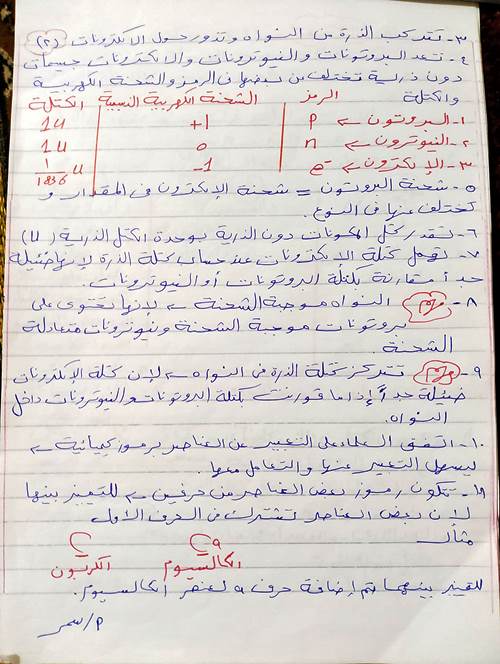 ٣- تتركب الذرة من النواه وتدور حول الالكترونات (٢)
٤- تعد البروتونات والنيوترونات والالكترونات جسيمات
دون ذرية تختلف عن بعضها فى الرمز والشحنة الكهربية
والكتلة الرمز الشحنة الكهربية النسبية الكتلة
١- البروتون ← P +1 1u
٢- النيوترون ← n 0 1u
٣- الإلكترون ← e⁻ -1 1/1836 u
٥- شحنة البروتون = شحنة الإلكترون فى المقدار و
تختلف عنها فى النوع.
٦- تقدر كتل المكونات دون الذرية بوحدة الكتل الذرية (u)
٧- تهمل كتلة الالكترونات عند حساب كتلة الذرة لإنها ضئيلة
جداً مقارنة بكتلة البروتونات أو النيوترونات.
٨- مهم النواه موجبة الشحنة ← لإنها تحتوى على
بروتونات موجبة الشحنة ونيوترونات متعادلة
الشحنة.
٩- مهم تتركز كتلة الذرة فى النواه ← لإن كتلة الإلكترونات
ضئيلة جداً إذا ما قورنت بكتلة البروتونات والنيوترونات داخل
النواه.
١٠- اتفق العلماء على التعبير عن العناصر برموز كيميائية ←
ليسهل التعبير عنها والتعامل معها.
١١- تتكون رموز بعض العناصر من حرفين ← للتمييز بينها
لإن بعض العناصر تشترك فى الحرف الأول
مثال
Ca C
الكالسيوم الكربون
للتمييز بينهما تم إضافة حرف a لعنصر الكالسيوم.
م/سمر